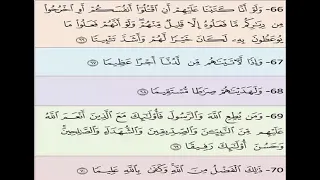 66- وَلَوْ أَنَّا كَتَبْنَا عَلَيْهِمْ أَنِ اقْتُلُوا أَنْفُسَكُمْ أَوِ اخْرُجُوا
مِن دِيَارِكُم مَّا فَعَلُوهُ إِلَّا قَلِيلٌ مِّنْهُمْ وَلَوْ أَنَّهُمْ فَعَلُوا مَا
يُوعَظُونَ بِهِ لَكَانَ خَيْرًا لَّهُمْ وَأَشَدَّ تَثْبِيتًا ٦٦
67- وَإِذًا لَّآتَيْنَاهُم مِّن لَّدُنَّا أَجْرًا عَظِيمًا ٦٧
68- وَلَهَدَيْنَاهُمْ صِرَاطًا مُّسْتَقِيمًا ٦٨
69- وَمَن يُطِعِ اللَّهَ وَالرَّسُولَ فَأُولَٰئِكَ مَعَ الَّذِينَ أَنْعَمَ اللَّهُ
عَلَيْهِم مِّنَ النَّبِيِّينَ وَالصِّدِّيقِينَ وَالشُّهَدَاءِ وَالصَّالِحِينَ
وَحَسُنَ أُولَٰئِكَ رَفِيقًا ٦٩
70- ذَٰلِكَ الْفَضْلُ مِنَ اللَّهِ وَكَفَىٰ بِاللَّهِ عَلِيمًا ٧٠